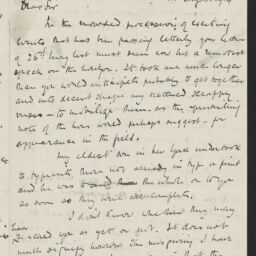 Dear Sir
In the crowded procession of exciting
events that has been passing lately your letter
of 25th May last must seem now but a remotest
speck on the horizon. It took me much longer
than you would anticipate probably to get together
and into decent shape my scattered scrappy
verses — to mobilize them, as the approaching
note of the hour would perhaps suggest — for
appearance in the field.
My eldest son in New York undertook
to typewrite them not already in type or print
and he was to send the whole on to you
as soon as they were complete.
I don't know whether they may
have
reached you as yet or not. It does not
much signify however the misgiving I have
that the